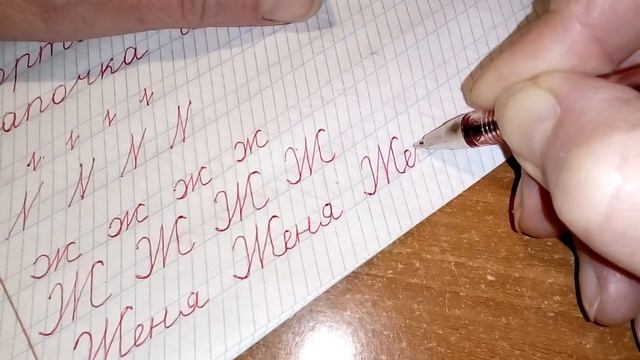 орт
апочка
N N N N
ж ж ж ж
Ж Ж Ж Ж
Женя Женя Же